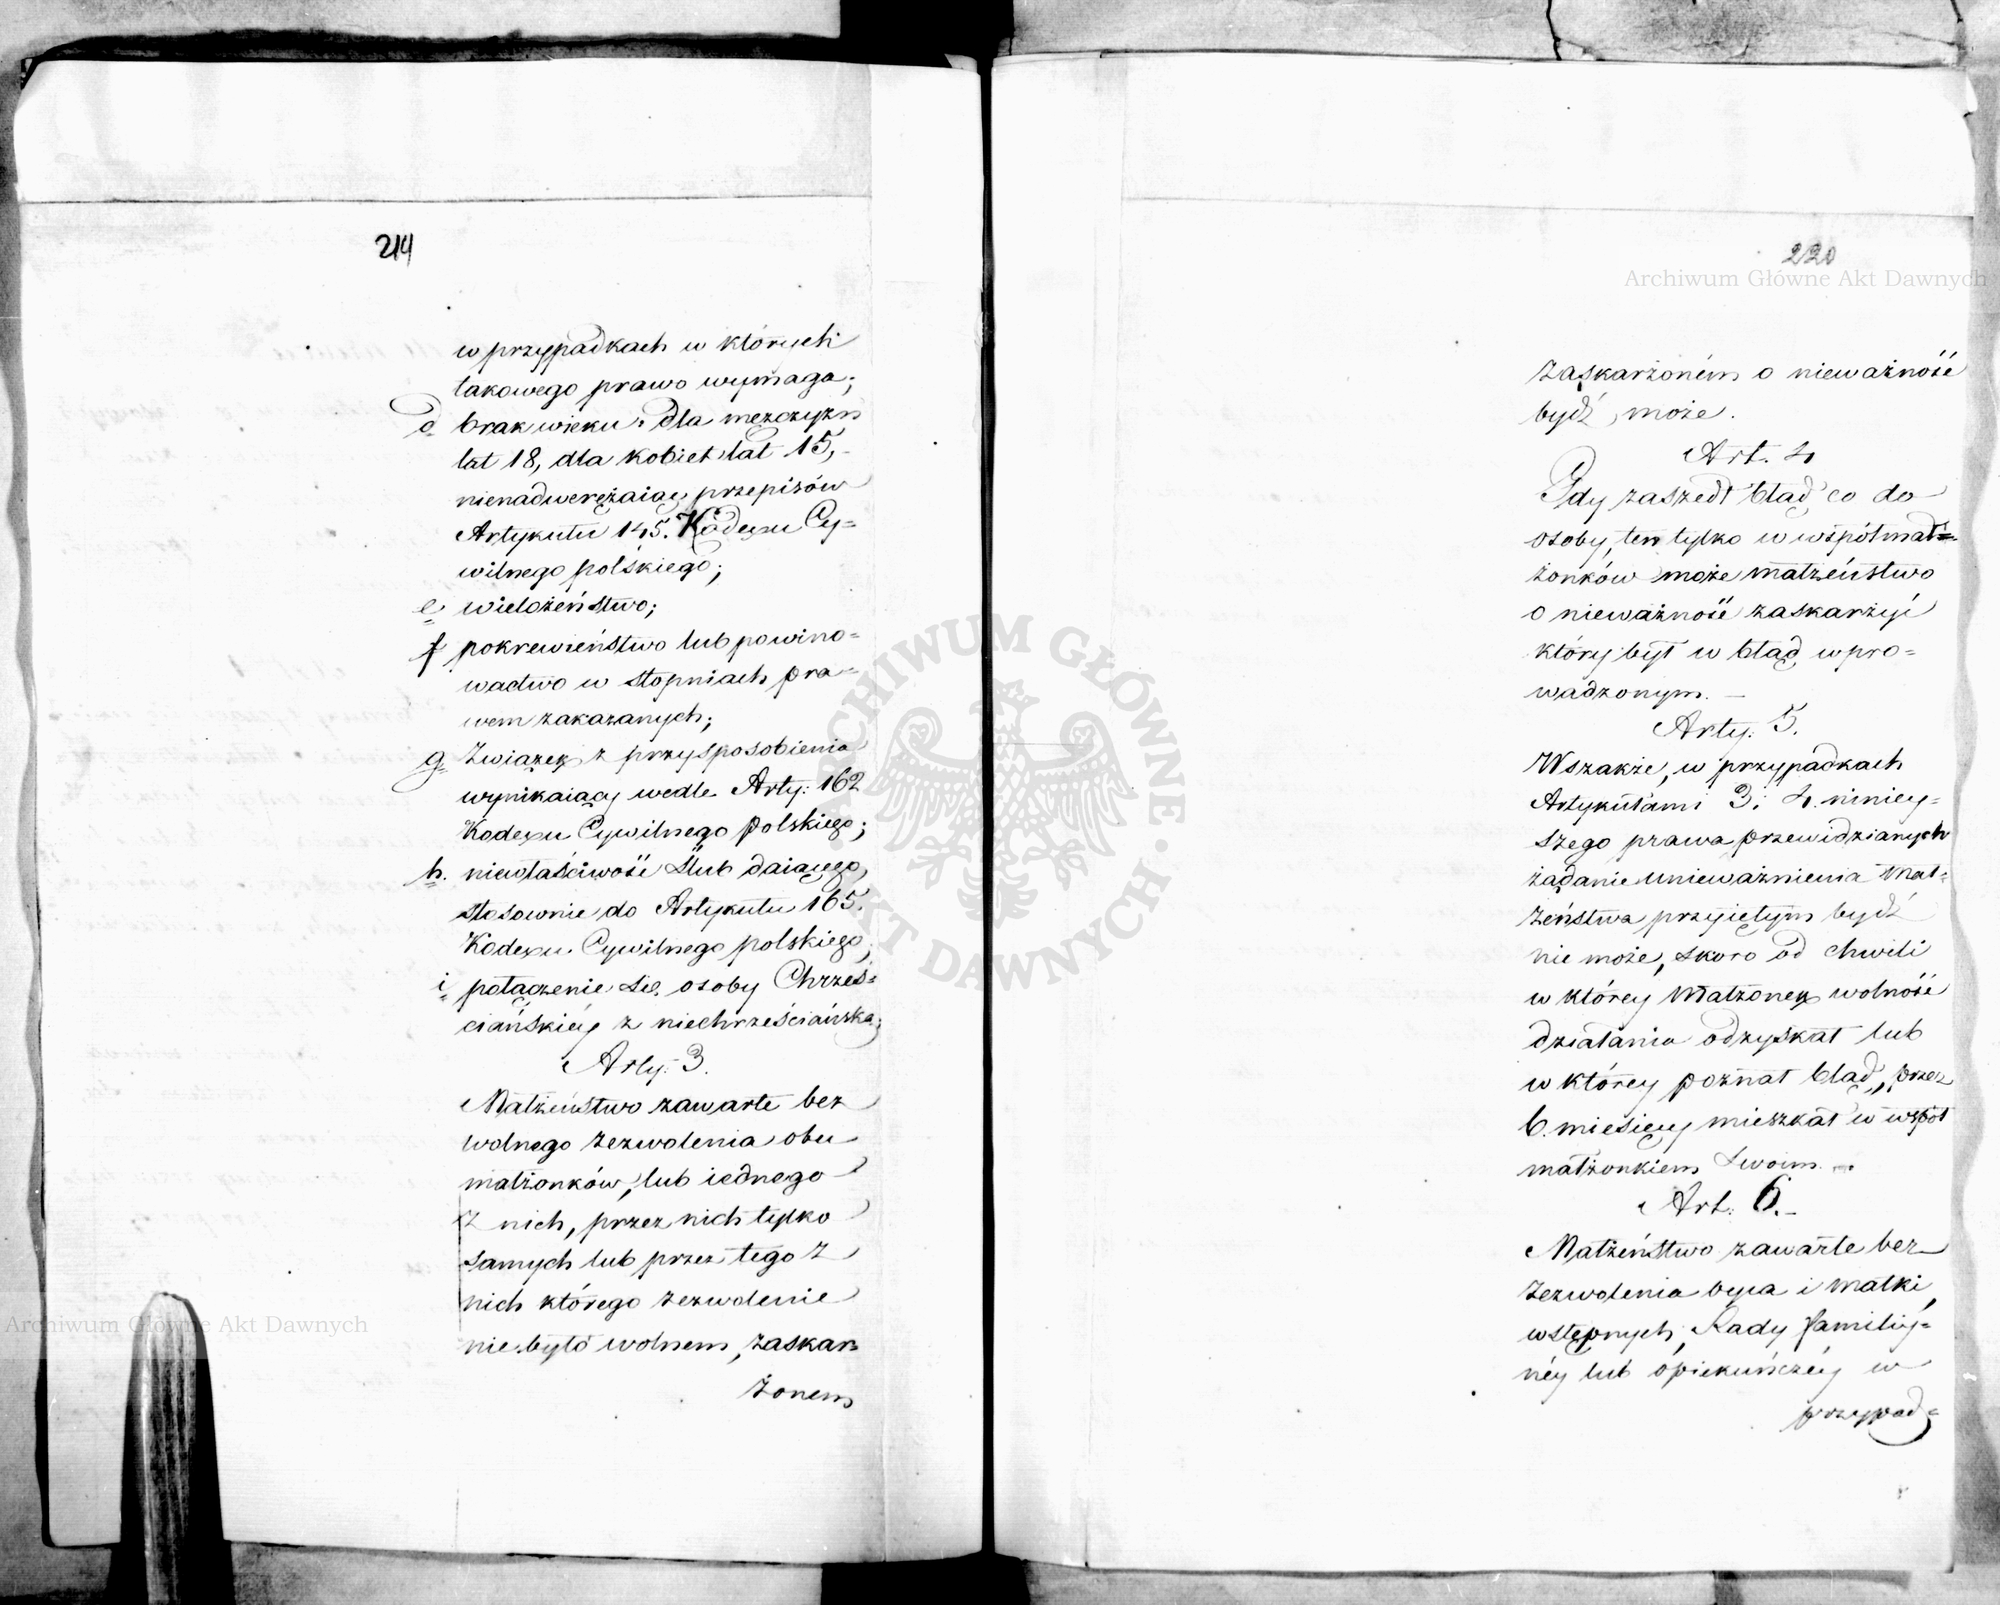 214
w przypadkach w których
takowego prawo wymaga;
d. brak wieku: dla mężczyzn
lat 18, dla kobiet lat 15,
nienadwerężaiąc przepisów
Artykułu 145. Kodexu Cy=
wilnego polskiego;
e. wielożeństwo;
f. pokrewieństwo lub powino=
wactwo w stopniach pra=
wem zakazanych;
g. Związek z przysposobienia
wynikaiący wedle Arty: 162
Kodexu Cywilnego polskiego;
h. niewłaściwość Ślub daiącego,
stosownie do Artykułu 165.
Kodexu Cywilnego polskiego;
i. połączenie się osoby Chrześ=
ciańskiéy z niechrześciańską;
Arty: 3.
Małżeństwo zawarte bez
wolnego zezwolenia obu
małżonków, lub iednego
z nich, przez nich tylko
samych lub przez tego z
nich którego zezwolenie
nie było wolnem, zaskar=
żonem
220
zaskarżoném o nieważność
bydź może.
Art. 4
Gdy zaszedł błąd co do
osoby, ten tylko w współmał=
żonków może małżeństwo
o nieważność zaskarżyć
który był w błąd wpro=
wadzonym. —
Arty: 5.
Wszakże, w przypadkach
Artykułami 3 i 4. niniey=
szego prawa przewidzianych
żądanie unieważnienia Mał=
żeństwa przyiętym bydź
nie może, skoro od chwili
w któréy Małżonek wolność
działania odzyskał lub
w któréy poznał błąd, przez
6. miesięcy mieszkał w współ
małżonkiem swoim. —
Art: 6. —
Małżeństwo zawarte bez
zezwolenia oyca i matki,
wstępnych, Rady familiy=
néy lub opiekuńczéy w
przypad=
Archiwum Główne Akt Dawnych
Archiwum Główne Akt Dawnych
ARCHIWUM GŁÓWNE AKT DAWNYCH